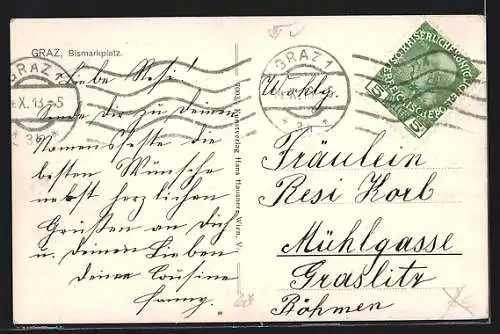 GRAZ, Bismarkplatz.
Liebe Resi!
Sende Dir zu Deinem
Namensfeste die
besten Wünsche
nebst herzlichen
Grüßen an Dich
u. Deine Lieben
Deine Cousine
Fanny.
Kunstverlag Hans Wien, V.
GRAZ 1
X. 13-5
* 3b *
GRAZ 1
Wohlg.
Fräulein
Resi Korb
Mühlgasse
Graslitz
Böhmen
5
5